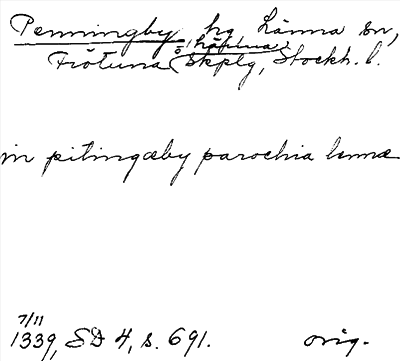 Penningby, hg Länna sn,
Frötuna o. Länna Skplg, Stockh. l.
in pitingæby parochia lennæ
7/11
1339, SD 4, s. 691. orig.